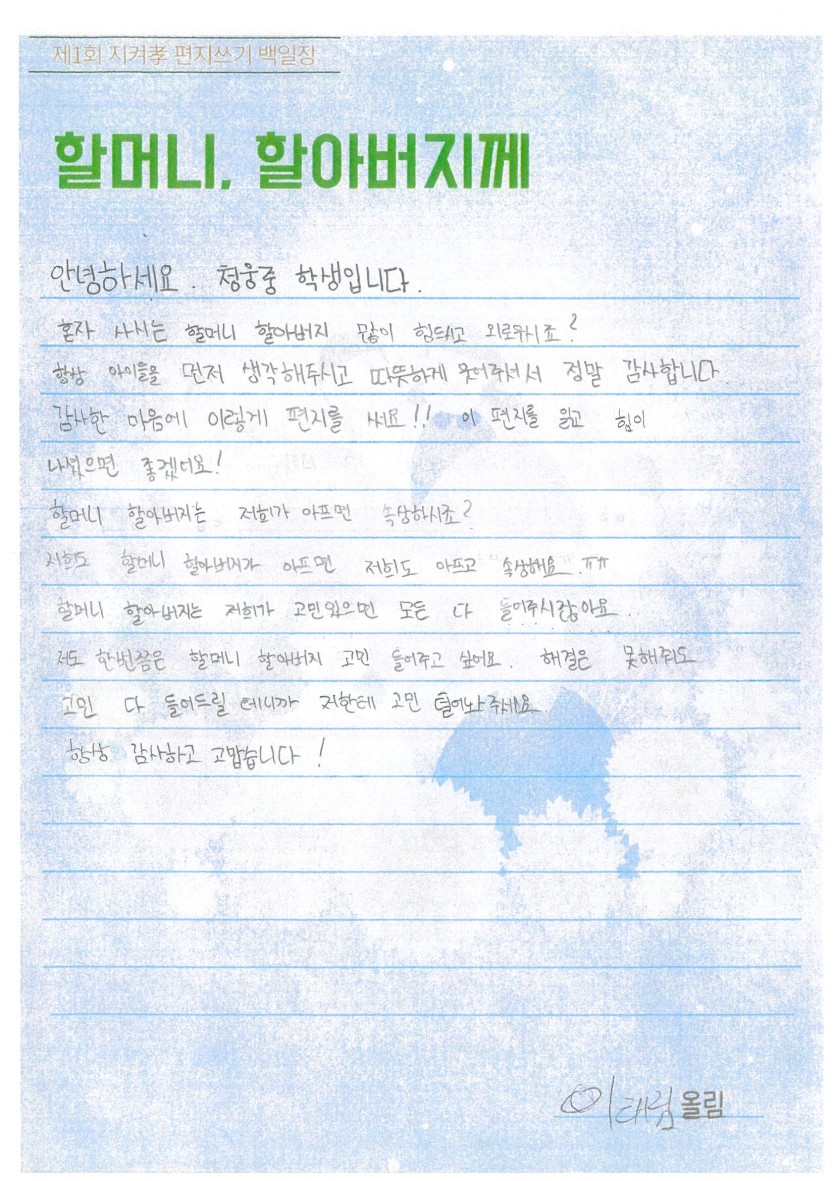 제1회 지켜孝 편지쓰기 백일장
할머니, 할아버지께
안녕하세요. 청웅중 학생입니다.
혼자 사시는 할머니 할아버지 많이 힘드시고 외로우시죠?
항상 아이들을 먼저 생각해주시고 따뜻하게 웃어주셔서 정말 감사합니다
감사한 마음에 이렇게 편지를 써요!! 이 편지를 읽고 힘이
나셨으면 좋겠어요!
할머니 할아버지는 저희가 아프면 속상하시죠?
저희도 할머니 할아버지가 아프면 저희도 아프고 "속상해요".ㅠㅠ
할머니 할아버지는 저희가 고민있으면 모든 다 들어주시잖아요.
저도 한번쯤은 할머니 할아버지 고민 들어주고 싶어요. 해결은 못해줘도
고민 다 들어드릴 테니까 저한테 고민 털어놔 주세요
항상 감사하고 고맙습니다!
이태림 올림